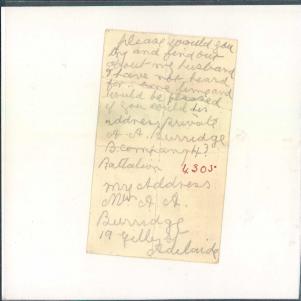 please would you
try and find out
about my husband
I have not heard
for some time and
would be pleased
if you could his
address private
A. A. Burridge
B company 43
Battalion
4305
my address
Mrs A A
Burridge
19 Gilles St
Adelaide